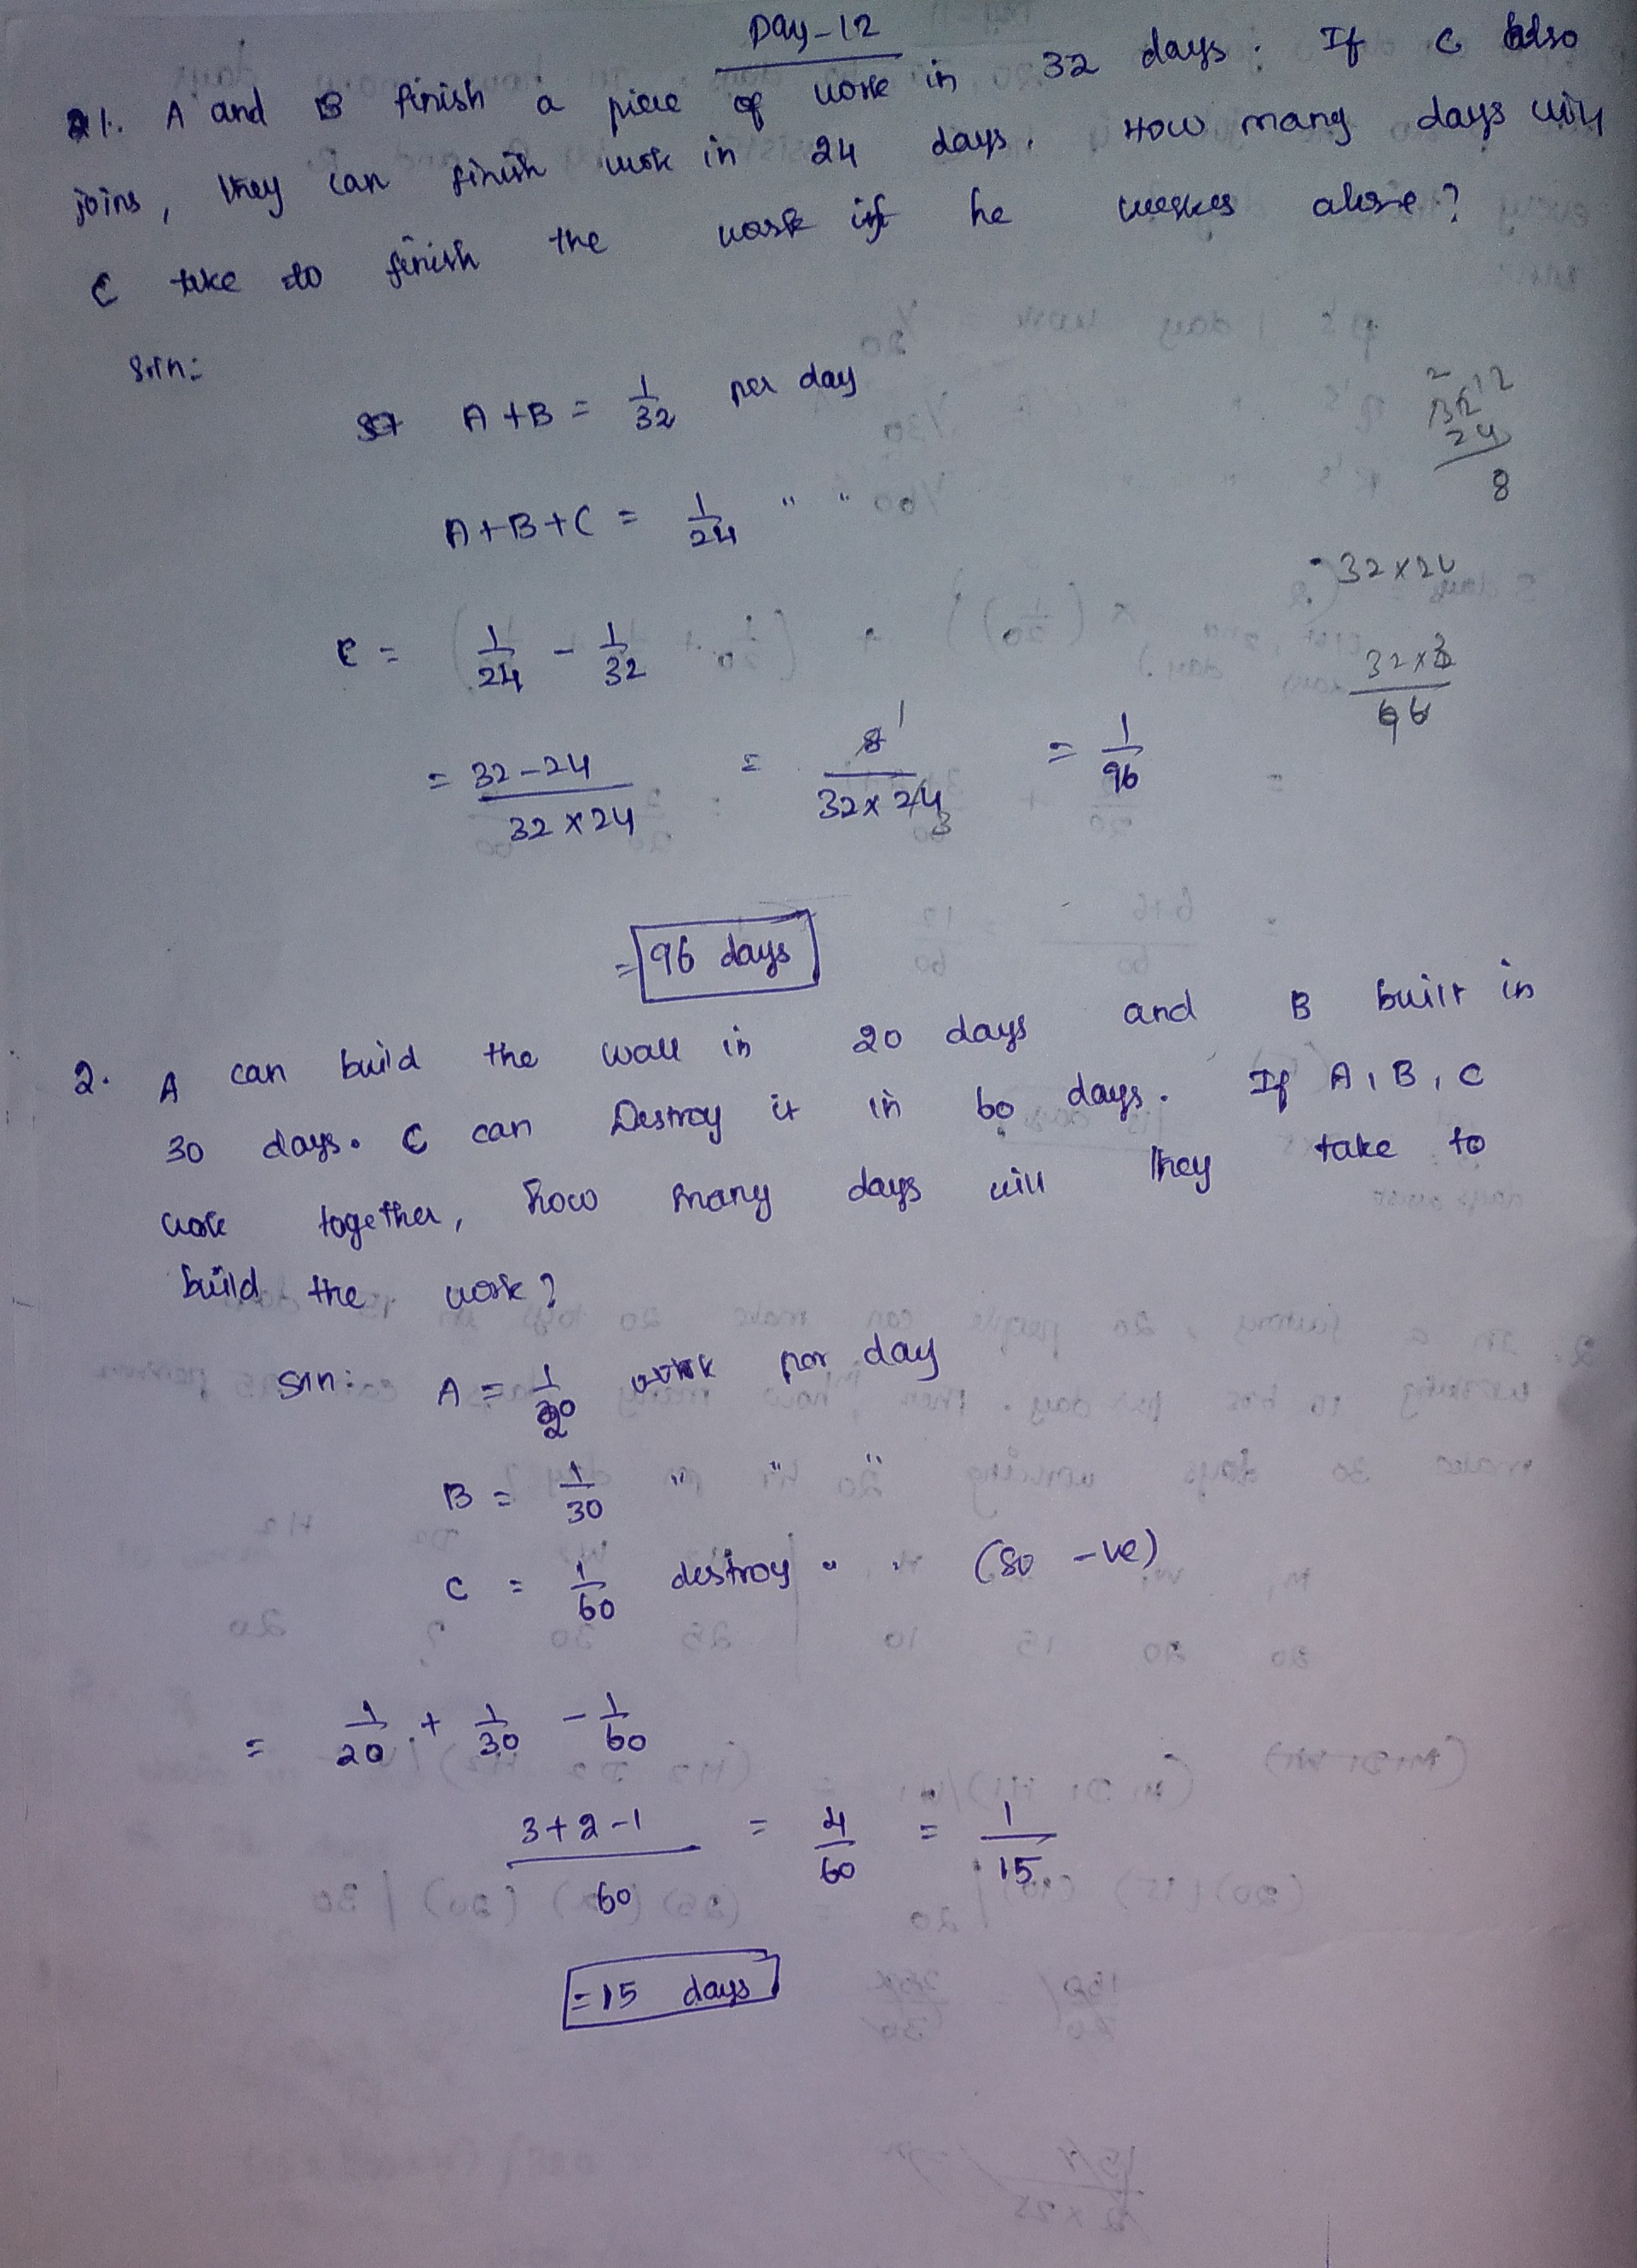 Day-12
1. A and B finish a piece of work in 32 days. If C also
joins, they can finish work in 24 days. How many days will
C take to finish the work if he workes alone?
Soln:
A+B = 1/32 per day
A+B+C = 1/24 " "
C = 1/24 - 1/32
= 32-24 / 32×24 = 8 1 / 32×24 3 = 1/96
= 96 days
2 12
32
24
8
32×24
32×3
96
2. A can build the wall in 20 days and B built in
30 days. C can Destroy it in 60 days. If A, B, C
work together, how many days will they take to
build the work?
Soln: A = 1/20 work per day
B = 1/30 " " "
C = 1/60 destroy " " (so -ve)
= 1/20 + 1/30 - 1/60
3+2-1 / 60 = 4/60 = 1/15
= 15 days